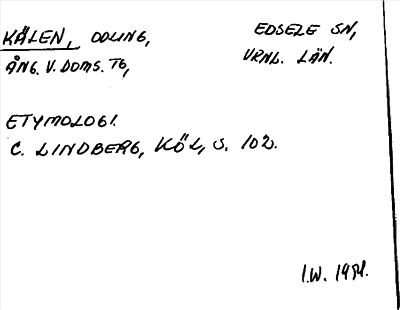 KÄLEN, ODLING, EDSELE SN,
ÅNG. V. DOMS. TG, VRNL. LÄN.
ETYMOLOGI.
C. LINDBERG, KÖL, S. 102.
I.W. 1954.